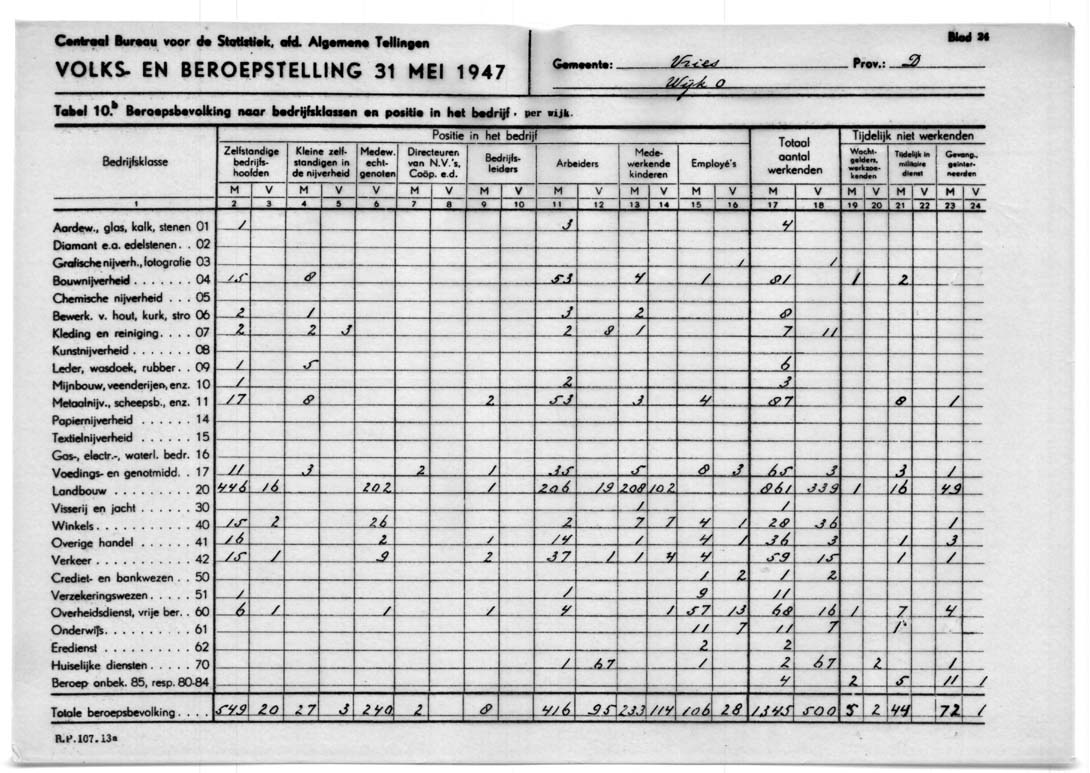 Centraal Bureau voor de Statistiek, afd. Algemene Tellingen
Blad 24
VOLKS- EN BEROEPSTELLING 31 MEI 1947
Gemeente: Vries Prov.: D
Wijk 0
Tabel 10.b Beroepsbevolking naar bedrijfsklassen en positie in het bedrijf, per wijk.
Bedrijfsklasse
Positie in het bedrijf
Zelfstandige bedrijfs-hoofden
Kleine zelf-standigen in de nijverheid
Medew. echt-genoten
Directeuren van N.V.'s, Coöp. e.d.
Bedrijfs-leiders
Arbeiders
Mede-werkende kinderen
Employé's
Totaal aantal werkenden
Tijdelijk niet werkenden
Wacht-gelders, werkzoe-kenden
Tijdelijk in militaire dienst
Gevang., geïnter-neerden
M V M V V M V M V M V M V M V M V M V M V M V
1 2 3 4 5 6 7 8 9 10 11 12 13 14 15 16 17 18 19 20 21 22 23 24
Aardew., glas, kalk, stenen 01 1 3 4
Diamant e.a. edelstenen. . 02
Grafische nijverh., fotografie 03 1 1
Bouwnijverheid . . . . . . . 04 15 8 53 4 1 81 1 2
Chemische nijverheid . . . 05
Bewerk. v. hout, kurk, stro 06 2 1 3 2 8
Kleding en reiniging. . . . 07 2 2 3 2 8 1 7 11
Kunstnijverheid . . . . . . . 08
Leder, wasdoek, rubber. . 09 1 5 6
Mijnbouw, veenderijen, enz. 10 1 2 3
Metaalnijv., scheepsb., enz. 11 17 8 2 53 3 4 87 8 1
Papiernijverheid . . . . . . 14
Textielnijverheid . . . . . . 15
Gas-, electr.-, waterl. bedr. 16
Voedings- en genotmidd. . 17 11 3 2 1 35 5 8 3 65 3 3 1
Landbouw . . . . . . . . . 20 446 16 202 1 206 19 208 102 861 339 1 16 49
Visserij en jacht . . . . . . 30 1 1
Winkels . . . . . . . . . . . 40 15 2 26 2 7 7 4 1 28 36 1
Overige handel . . . . . . 41 16 2 1 14 1 4 1 36 3 1 3
Verkeer . . . . . . . . . . . 42 15 1 9 2 37 1 1 4 4 59 15 1 1
Crediet- en bankwezen . . 50 1 2 1 2
Verzekeringswezen. . . . . 51 1 1 9 11
Overheidsdienst, vrije ber. . 60 6 1 1 1 4 1 57 13 68 16 1 7 4
Onderwijs. . . . . . . . . . 61 11 7 11 7 1
Eredienst . . . . . . . . . . 62 2 2
Huiselijke diensten . . . . . 70 1 67 1 2 67 2 1
Beroep onbek. 85, resp. 80-84 4 2 5 11 1
Totale beroepsbevolking . . . . 549 20 27 3 240 2 8 416 95 233 114 106 28 1345 500 5 2 44 72 1
R.P. 107. 13a